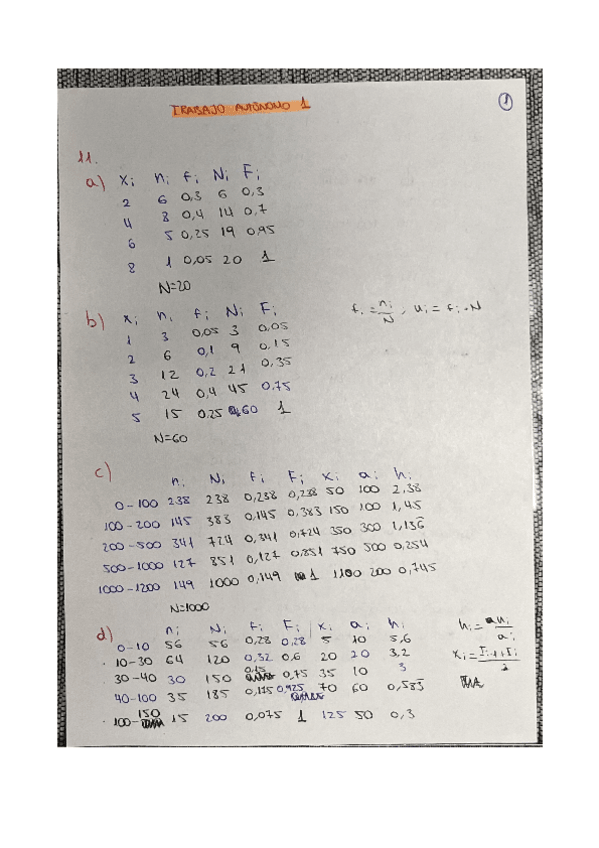 TRABAJO AUTÓNOMO 1
1
11.
a) xi ni fi Ni Fi
2 6 0,3 6 0,3
4 8 0,4 14 0,7
6 5 0,25 19 0,95
8 1 0,05 20 1
N=20
b) xi ni fi Ni Fi
fi = ni/N , ni = fi · N
1 3 0,05 3 0,05
2 6 0,1 9 0,15
3 12 0,2 21 0,35
4 24 0,4 45 0,75
5 15 0,25 60 1
N=60
c) ni Ni fi Fi xi ai hi
0-100 238 238 0,238 0,238 50 100 2,38
100-200 145 383 0,145 0,383 150 100 1,45
200-500 341 724 0,341 0,724 350 300 1,136
500-1000 127 851 0,127 0,851 750 500 0,254
1000-1200 149 1000 0,149 1 1100 200 0,745
N=1000
d) ni Ni fi Fi xi ai hi
hi = ni/ai
0-10 56 56 0,28 0,28 5 10 5,6
10-30 64 120 0,32 0,6 20 20 3,2
xi = Ii-1+Ii/2
30-40 30 150 0,15 0,75 35 10 3
40-100 35 185 0,175 0,925 70 60 0,583
100-150 15 200 0,075 1 125 50 0,3